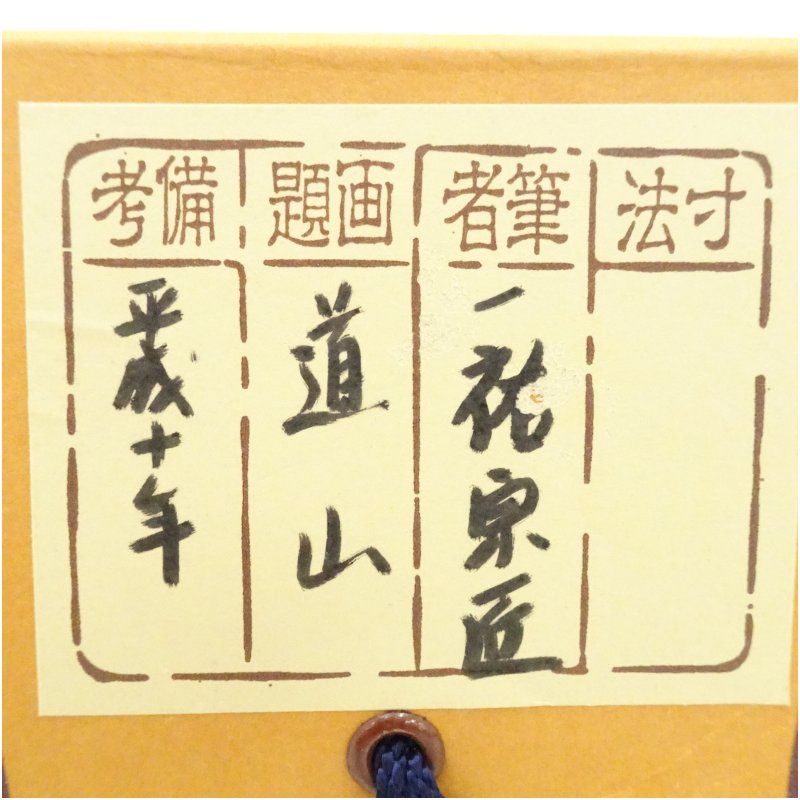 寸法
筆者
一祐宗匠
画題
道山
備考
平成十年